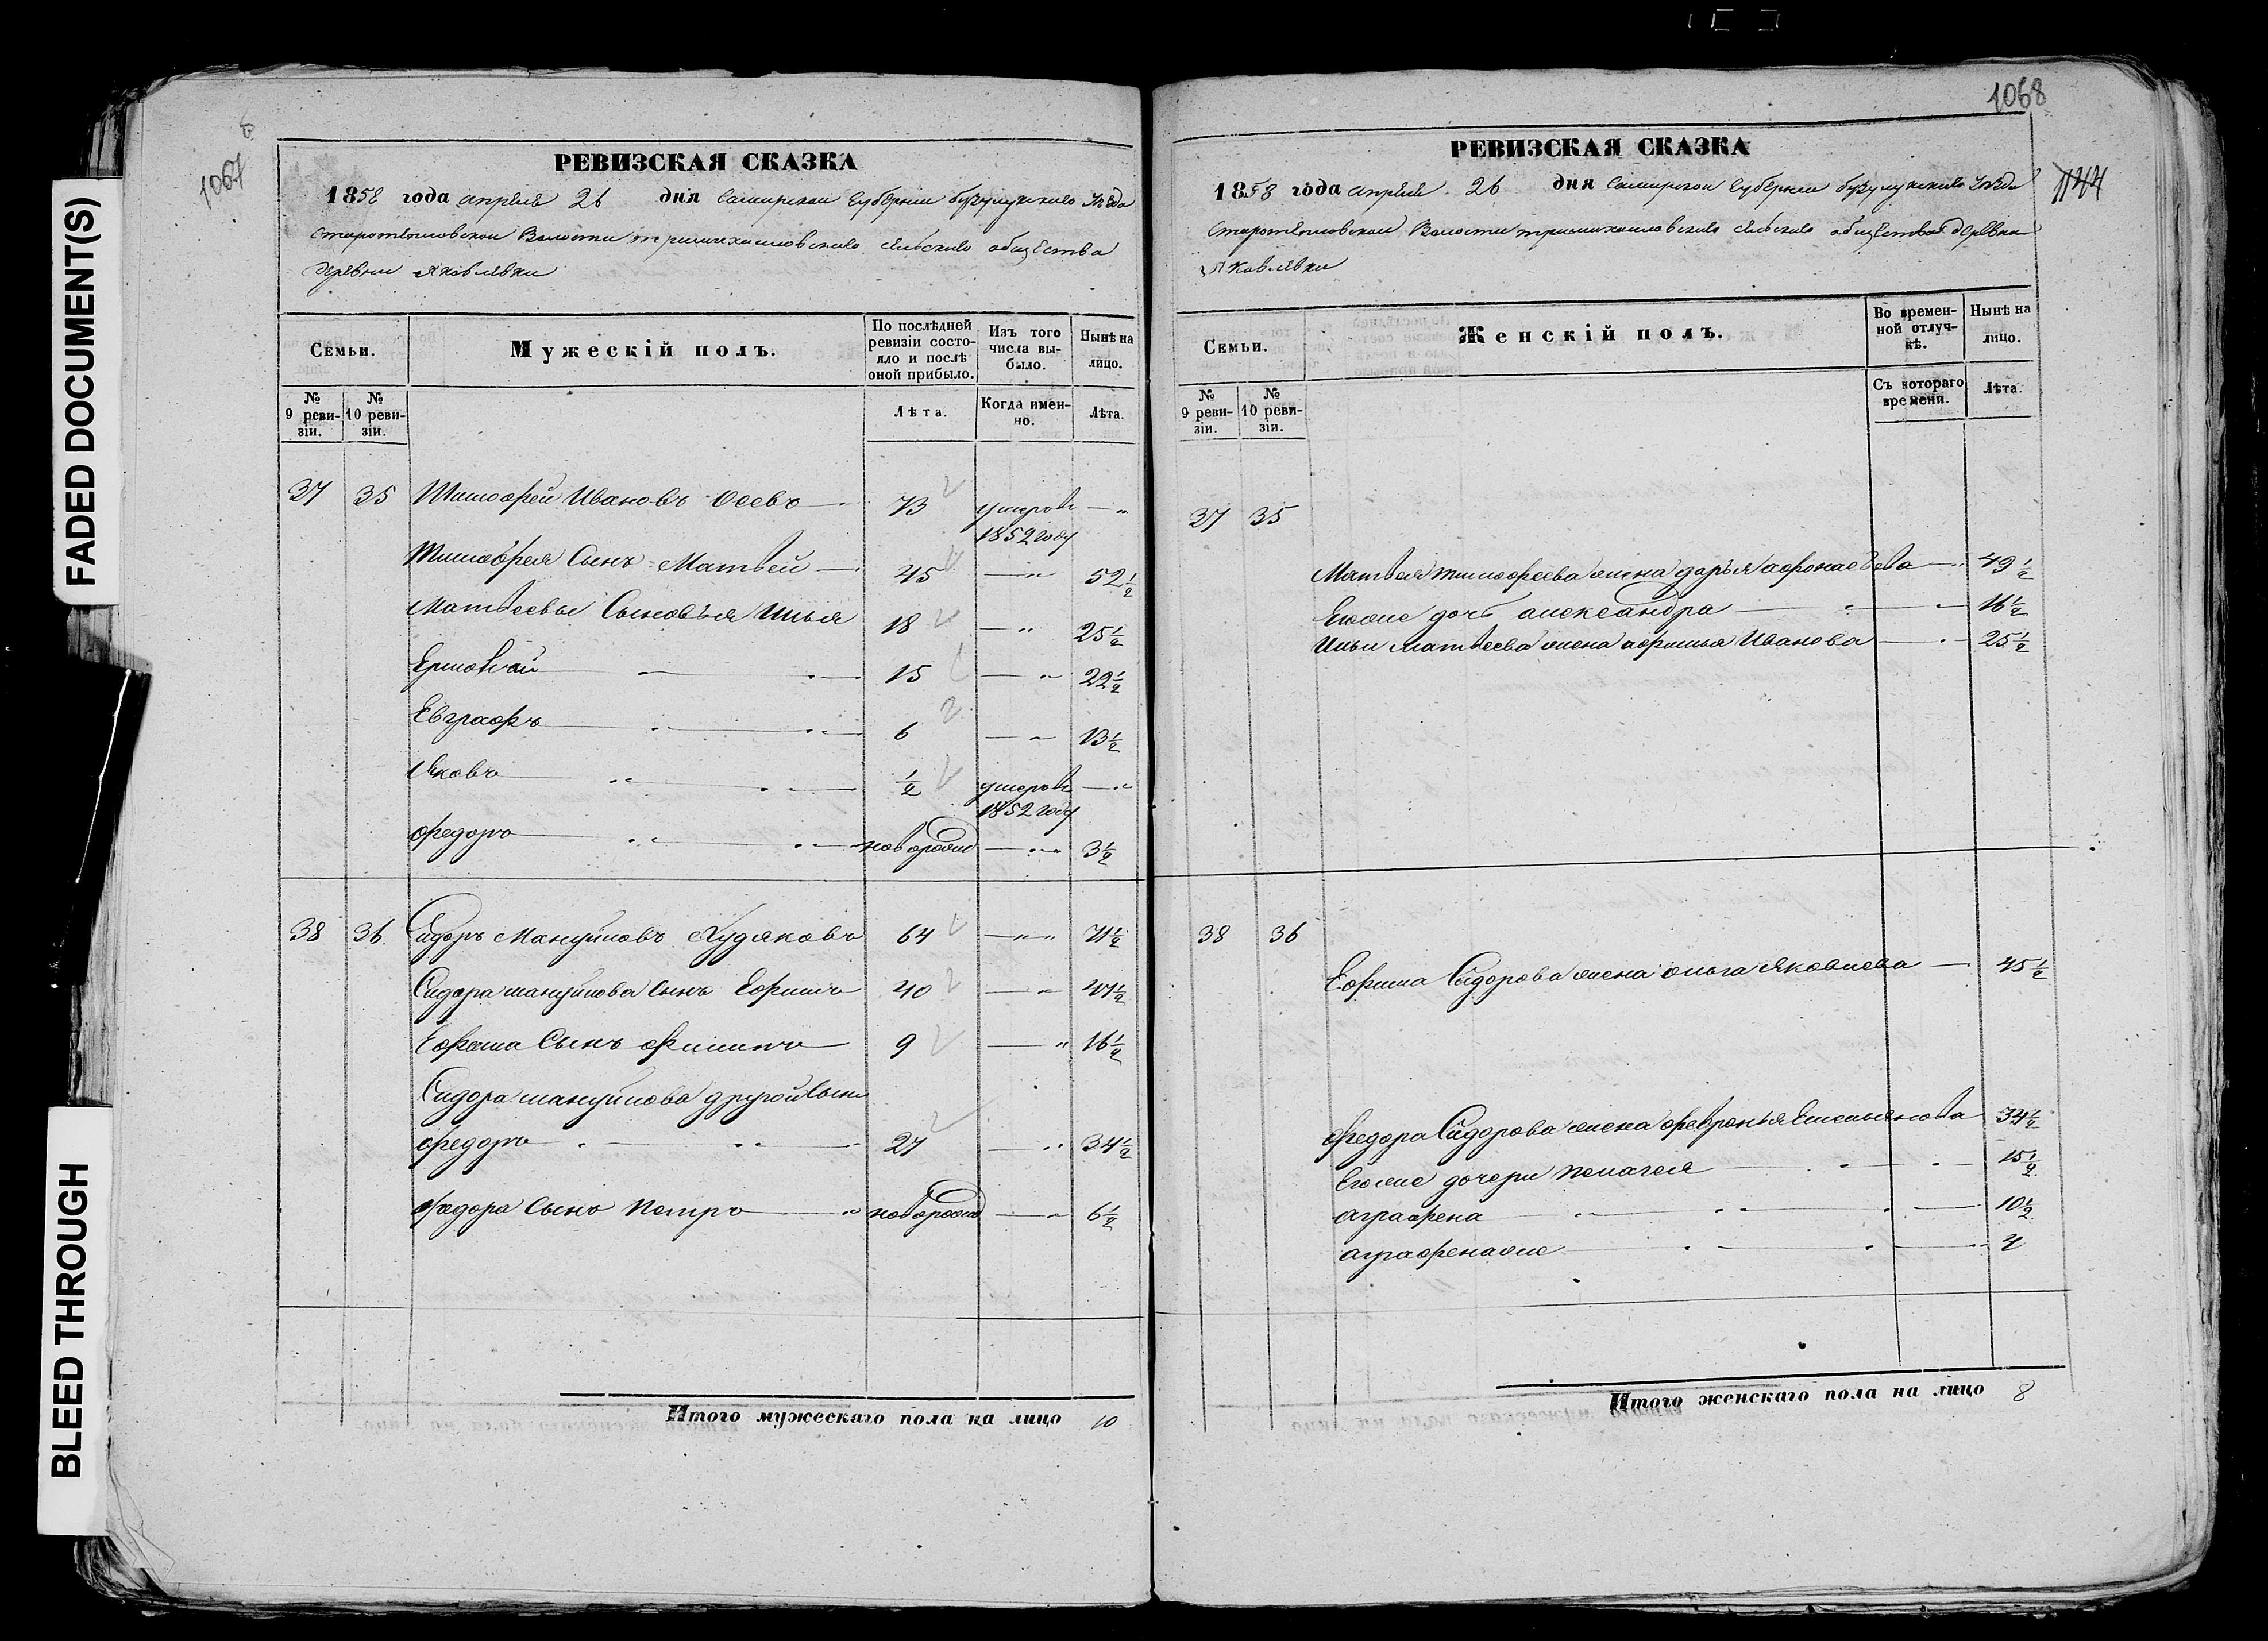 FADED DOCUMENT(S)
BLEED THROUGH
1067
РЕВИЗСКАЯ СКАЗКА
1858 года апреля 26 дня Самарской Губернии бузулукского Уезда
Старотепловской Волости тримихаиловского сельского общества
деревни Яковлевки
Семьи.
Мужескій полъ.
По послѣдней ревизіи состояло и послѣ оной прибыло.
Изъ того числа выбыло.
Нынѣ на лицо.
№ 9 ревизіи.
№ 10 ревизіи.
Лѣта.
Когда именно.
Лѣта.
37 35 Тимофей Ивановъ Осевъ 73 умеръ въ 1852 году
Тимофея Сынъ Матвей 45 52 1/2
Матвеевы Сыновья Илья 18 25 1/2
Ермолай 15 22 1/2
Евграфъ 6 13 1/2
Яковъ 1/2 умеръ въ 1852 году
Федоръ новорожд 3 1/2
38 36 Сидоръ Мануйловъ Худяковъ 64 71 1/2
Сидора мануйлова Сынъ Ефимъ 40 47 1/2
Ефима Сынъ филипъ 9 16 1/2
Сидора мануйлова другой Сынъ
федоръ 27 34 1/2
федора Сынъ Петръ новорожд 6 1/2
Итого мужескаго пола на лицо 10
1068
РЕВИЗСКАЯ СКАЗКА
1858 года апреля 26 дня Самарской Губернии бузулукского Уезда
Старотепловской Волости тримихаиловского сельского общества деревни
Яковлевки
Семьи.
Женскій полъ.
Во временной отлучкѣ.
Нынѣ на лицо.
№ 9 ревизіи.
№ 10 ревизіи.
Съ котораго времени.
Лѣта.
37 35
Матвея тимофеева жена дарья афонасьева 49 1/2
Его же дочь александра 16 1/2
Ильи матвеева жена афимья Иванова 25 1/2
38 36
Ефима Сидорова жена ольга яковлева 45 1/2
федора Сидорова жена февронья Емельянова 34 1/2
Его же дочери пелагея 15 1/2
аграфена 10 1/2
аграфена же 4
Итого женскаго пола на лицо 8